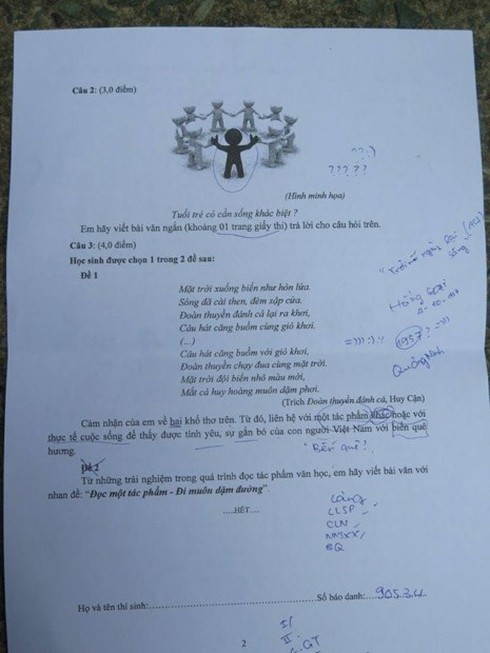 Câu 2: (3,0 điểm)
??:)
?????
(Hình minh họa)
Tuổi trẻ có cần sống khác biệt ?
Em hãy viết bài văn ngắn (khoảng 01 trang giấy thi) trả lời cho câu hỏi trên.
Câu 3: (4,0 điểm)
Học sinh được chọn 1 trong 2 đề sau:
Đề 1
Mặt trời xuống biển như hòn lửa.
Sóng đã cài then, đêm sập cửa.
Đoàn thuyền đánh cá lại ra khơi,
Câu hát căng buồm cùng gió khơi.
(...)
Câu hát căng buồm với gió khơi,
Đoàn thuyền chạy đua cùng mặt trời.
Mặt trời đội biển nhô màu mới,
Mắt cá huy hoàng muôn dặm phơi.
"Trời mỗi ngày lại
sáng"
1957?
Quảng Ninh
(Trích Đoàn thuyền đánh cá, Huy Cận)
Cảm nhận của em về hai khổ thơ trên. Từ đó, liên hệ với một tác phẩm khác hoặc với
thực tế cuộc sống để thấy được tình yêu, sự gắn bó của con người Việt Nam với biển quê
hương.
"Bến quê"?
Đề 2
Từ những trải nghiệm trong quá trình đọc tác phẩm văn học, em hãy viết bài văn với
nhan đề: “Đọc một tác phẩm - Đi muôn dặm đường”.
....HẾT....
CLSP
CLN
BQ
Họ và tên thí sinh: Số báo danh: 905.3.4.
2
I/
II